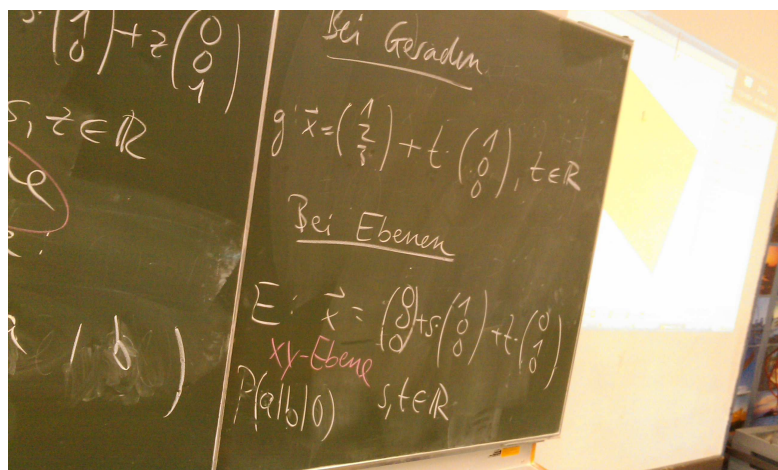 s·(1 0) + z(0 0 1)
s, z ∈ ℝ
a | b )
Bei Geraden
g: x⃗ = (1 2 3) + t·(1 0 0), t ∈ ℝ
Bei Ebenen
E: x⃗ = (0 0 0) + s·(1 0 0) + t·(0 1 0)
xy-Ebene
P(a|b|0) s,t ∈ ℝ